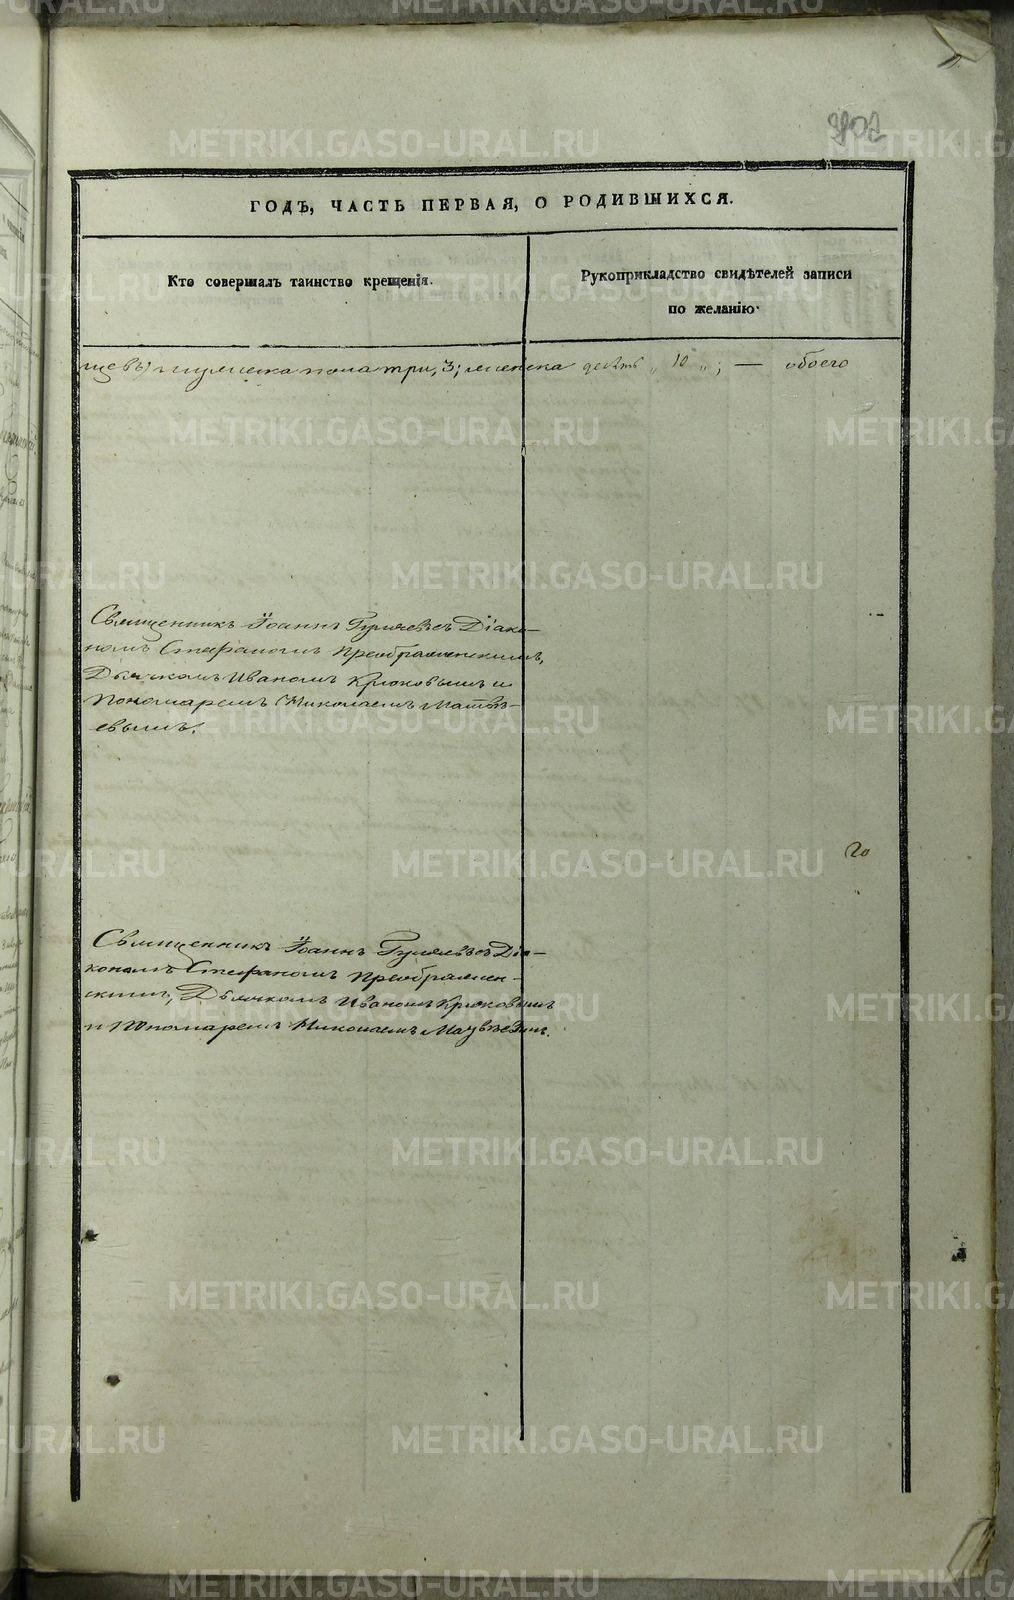 ГОДЪ, ЧАСТЬ ПЕРВАЯ, О РОДИВШИХСЯ.
Кто совершалъ таинство крещенія.
Рукоприкладство свидѣтелей записи
по желанію.
мужеска пола три, 3; женска десять „ 10 „ ; — обоего
Священникъ Іоаннъ Гуляевъ съ Діако-
номъ Стефаномъ Преображенскимъ,
Дьячкомъ Иваномъ Крюковымъ и
Пономаремъ Николаемъ Матвѣ-
евымъ.
20
Священникъ Іоаннъ Гуляевъ съ Діа-
кономъ Стефаномъ Преображен-
скимъ, Дьячкомъ Иваномъ Крюковымъ
и Пономаремъ Николаемъ
METRIKI.GASO-URAL.RU